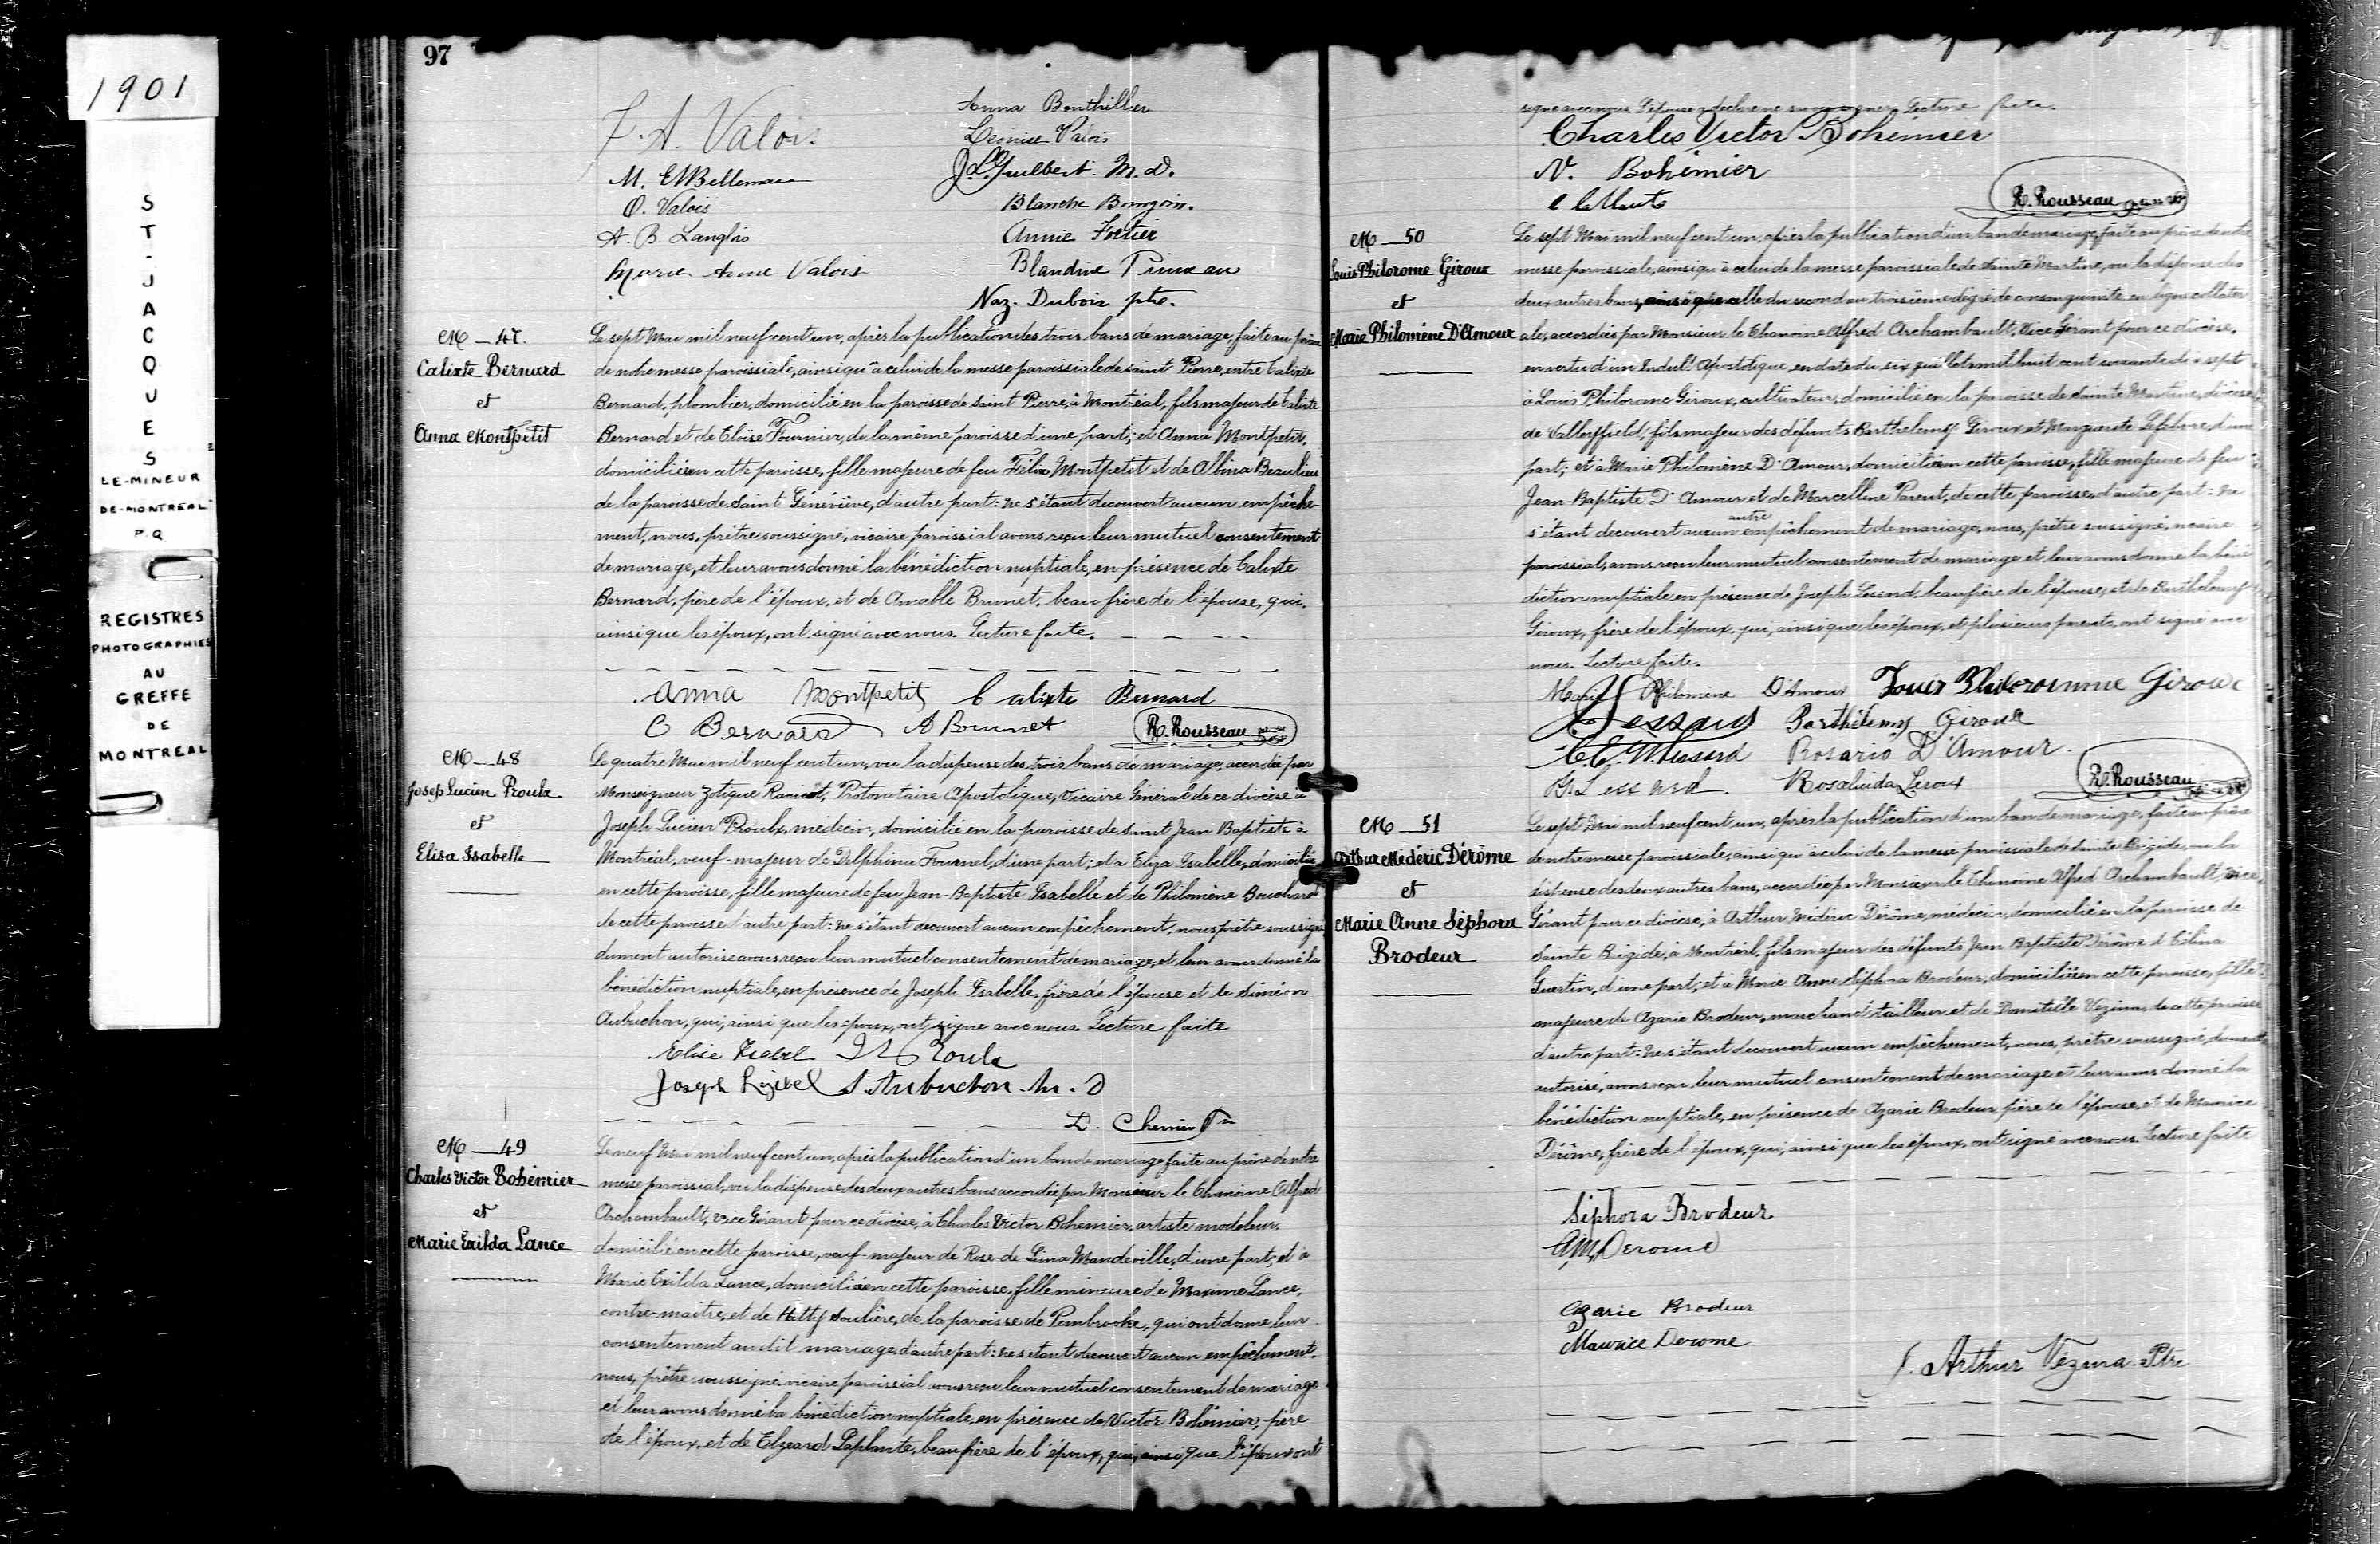 1901
ST-JACQUES
LE-MINEUR
DE-MONTREAL
P.Q.
REGISTRES
PHOTOGRAPHIES
AU
GREFFE
DE
MONTREAL
97
F. A. Valois
Anna Bonthillier
Leonise Valois
M. E. Bellemare
J. L. Guilbert M.D.
O. Valois
Blanche Bourgoin.
A. B. Langlois
Annie Fortier
Marie Anne Valois
Blandine Primeau
Naz. Dubois ptre.
M — 47.
Calixte Bernard
et
Anna Montpetit
Le sept Mai mil neuf cent un, après la publication des trois bans de mariage, faite au prône
de notre messe paroissiale, ainsi qu'à celui de la messe paroissiale de saint Pierre, entre Calixte
Bernard, plombier, domicilié en la paroisse de Saint Pierre, à Montréal, fils majeur de Calixte
Bernard et de Eloïse Fournier, de la même paroisse d'une part; et Anna Montpetit,
domiciliée en cette paroisse, fille majeure de feu Félix Montpetit et de Albina Beaulieu
de la paroisse de Saint Généviève, d'autre part: ne s'étant decouvert aucun empêche-
ment, nous, prêtre soussigné, vicaire paroissial avons reçu leur mutuel consentement
de mariage, et leur avons donné la bénédiction nuptiale, en présence de Calixte
Bernard, père de l'époux, et de Amable Brunet, beau frère de l'épouse, qui,
ainsi que les époux, ont signé avec nous. Lecture faite.
Anna Montpetit Calixte Bernard
C Bernard A Brunet R. Rousseau
M — 48
Josep Lucien Proulx
et
Elisa Isabelle
Le quatre Mai mil neuf cent un, vu la dispense des trois bans de mariage, accordée par
Monseigneur Zotique Racicot, Protonotaire Apostolique, Vicaire Général de ce diocèse à
Joseph Lucien Proulx, médecin, domicilié en la paroisse de Saint Jean Baptiste à
Montréal, veuf majeur de Delphina Fournel, d'une part; et à Eliza Isabelle, domiciliée
en cette paroisse, fille majeure de feu Jean-Baptiste Isabelle et de Philomène Bouchard
de cette paroisse d'autre part: ne s'étant decouvert aucun empêchement, nous prêtre soussigné
dument autorisé avons reçu leur mutuel consentement de mariage, et leur avons donné la
bénédiction nuptiale, en présence de Joseph Isabelle, frère de l'épouse et de Siméon
Aubuchon, qui, ainsi que les époux, ont signé avec nous. Lecture faite
Elise Isabel J L Proulx
Joseph Izabel S. Aubuchon. M. D
D. Chemier Ptre
M — 49
Charles Victor Bohémier
et
Marie Exilda Lance
Le neuf Mai mil neuf cent un, après la publication d'un ban de mariage faite au prône de notre
messe paroissial, vu la dispense des deux autres bans accordée par Monsieur le Chanoine Alfred
Archambault, Vice Gérant pour ce diocèse, à Charles Victor Bohemier, artiste modeleur,
domicilié en cette paroisse, veuf majeur de Rose-de-Lima Mandeville, d'une part; et à
Marie Exilda Lance, domiciliée en cette paroisse, fille mineure de Maxime Lance,
contre-maitre, et de Hatty Soulière, de la paroisse de Pembrooke, qui ont donné leur
consentement au dit mariage, d'autre part: ne s'étant decouvert aucun empêchement,
nous, prêtre soussigné, vicaire paroissial avons reçu leur mutuel consentement de mariage
et leur avons donné la bénédiction nuptiale, en présence de Victor Bohémier, père
de l'époux, et de Elzeard Laplante, beau frère de l'époux, qui, ainsi que l'époux ont
signé avec nous. L'épouse a déclaré ne savoir signer. Lecture faite.
Charles Victor Bohemier
V. Bohémier
R. Rousseau
M — 50
Louis Philorome Giroux
et
Marie Philomène D'Amour
Le sept Mai mil neuf cent un, après la publication d'un ban de mariage, faite au prône de notre
messe paroissiale, ainsi qu'à celui de la messe paroissiale de Sainte Martine, vu la dispense des
deux autres bans, ainsi que celle du second au troisième dégré de consanguinité en ligne collatér-
ale, accordées par Monsieur le Chanoine Alfred Archambault, Vice Gérant pour ce diocèse,
en vertu d'un Indult Apostolique, en date du six juillet mil huit cent soixante dix sept
à Louis Philorome Giroux, cultivateur, domicilié en la paroisse de Sainte Martine, diocèse
de Valleyfield, fils majeur des défunts Barthelemy Giroux et Marguerite Lefebvre, d'une
part; et à Marie Philomène D'Amour, domiciliée en cette paroisse, fille majeure de feu
Jean-Baptiste D'Amour et de Marcelline Parent, de cette paroisse, d'autre part: ne
s'étant decouvert aucun autre empêchement de mariage, nous, prêtre soussigné, vicaire
paroissial, avons reçu leur mutuel consentement de mariage et leur avons donné la béné
diction nuptiale en présence de Joseph Lessard, beau frère de l'épouse, et de Barthelemy
Giroux, frère de l'époux, qui, ainsi que les époux, et plusieurs parents, ont signé avec
nous. Lecture faite.
Marie Philomène D'Amour Louis Philoromme Giroux
J Lessard Barthélemy Giroux
C. E. W. Lessard Rosario D'Amour.
B. Lessard. Rosalinda Leroux R. Rousseau
M — 51
Arthur Médéric Dérôme
et
Marie Anne Séphora
Brodeur
Le sept Mai mil neuf cent un, après la publication d'un ban de mariage, faite au prône
de notre messe paroissiale, ainsi qu'à celui de la messe paroissiale de Sainte Brigide, vu la
dispense des deux autres bans, accordée par Monsieur le Chanoine Alfred Archambault, Vice
Gérant pour ce diocèse, à Arthur Médéric Dérôme, médecin, domicilié en la paroisse de
Sainte Brigide, à Montréal, fils majeur des défunts Jean Baptiste Dérôme et Célina
Guertin, d'une part; et à Marie Anne Séphora Brodeur, domiciliée en cette paroisse, fille
majeure de Azarie Brodeur, marchand tailleur et de Domitille Vezina, de cette paroisse
d'autre part: ne s'étant decouvert aucun empêchement, nous, prêtre soussigné, dument
autorisé, avons reçu leur mutuel consentement de mariage et leur avons donné la
bénédiction nuptiale, en présence de Azarie Brodeur, père de l'épouse, et de Maurice
Dérôme, frère de l'époux, qui, ainsi que les époux, ont signé avec nous. Lecture faite
Séphora Brodeur
A M Derome
Azarie Brodeur
Maurice Derome
J. Arthur Vézina. Ptre